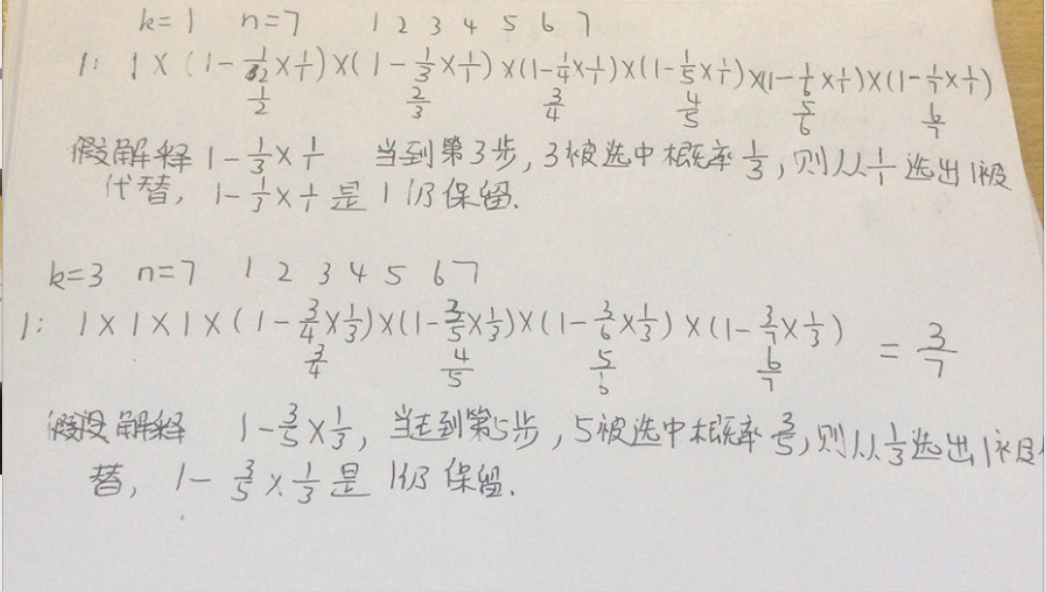 k=1 n=7 1 2 3 4 5 6 7
1: 1×(1-1/2×1/1)×(1-1/3×1/1)×(1-1/4×1/1)×(1-1/5×1/1)×(1-1/6×1/1)×(1-1/7×1/1)
1/2 2/3 3/4 4/5 5/6 6/7
解释 1-1/3×1/1 当到第3步,3被选中概率1/3,则从1/1选出1被
代替,1-1/3×1/1是1仍保留.
k=3 n=7 1 2 3 4 5 6 7
1: 1×1×1×(1-3/4×1/3)×(1-3/5×1/3)×(1-3/6×1/3)×(1-3/7×1/3) = 3/7
3/4 4/5 5/6 6/7
假设解释 1-3/5×1/3,当走到第5步,5被选中概率3/5,则从1/3选出1被
替,1-3/5×1/3是1仍保留.